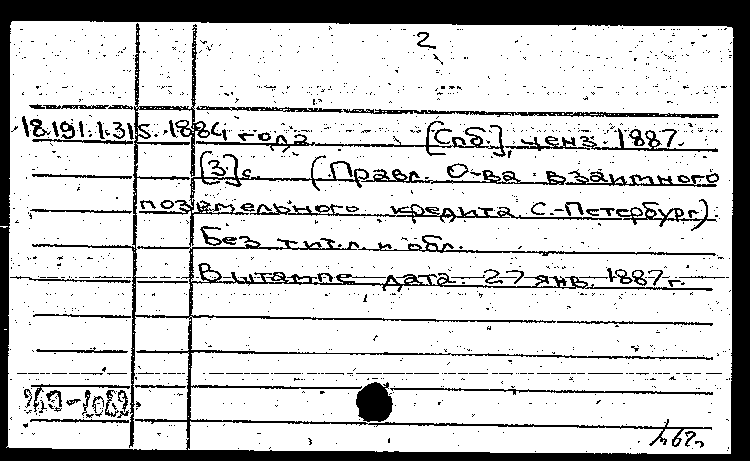 2
18.191.1.315. 1884 года. [Спб.], ценз. 1887.
[3]с. (Правл. О-ва взаимного
поземельного кредита С.-Петербург).
Без тит.л. и обл.
В штампе дата: 27 янв. 1887 г.